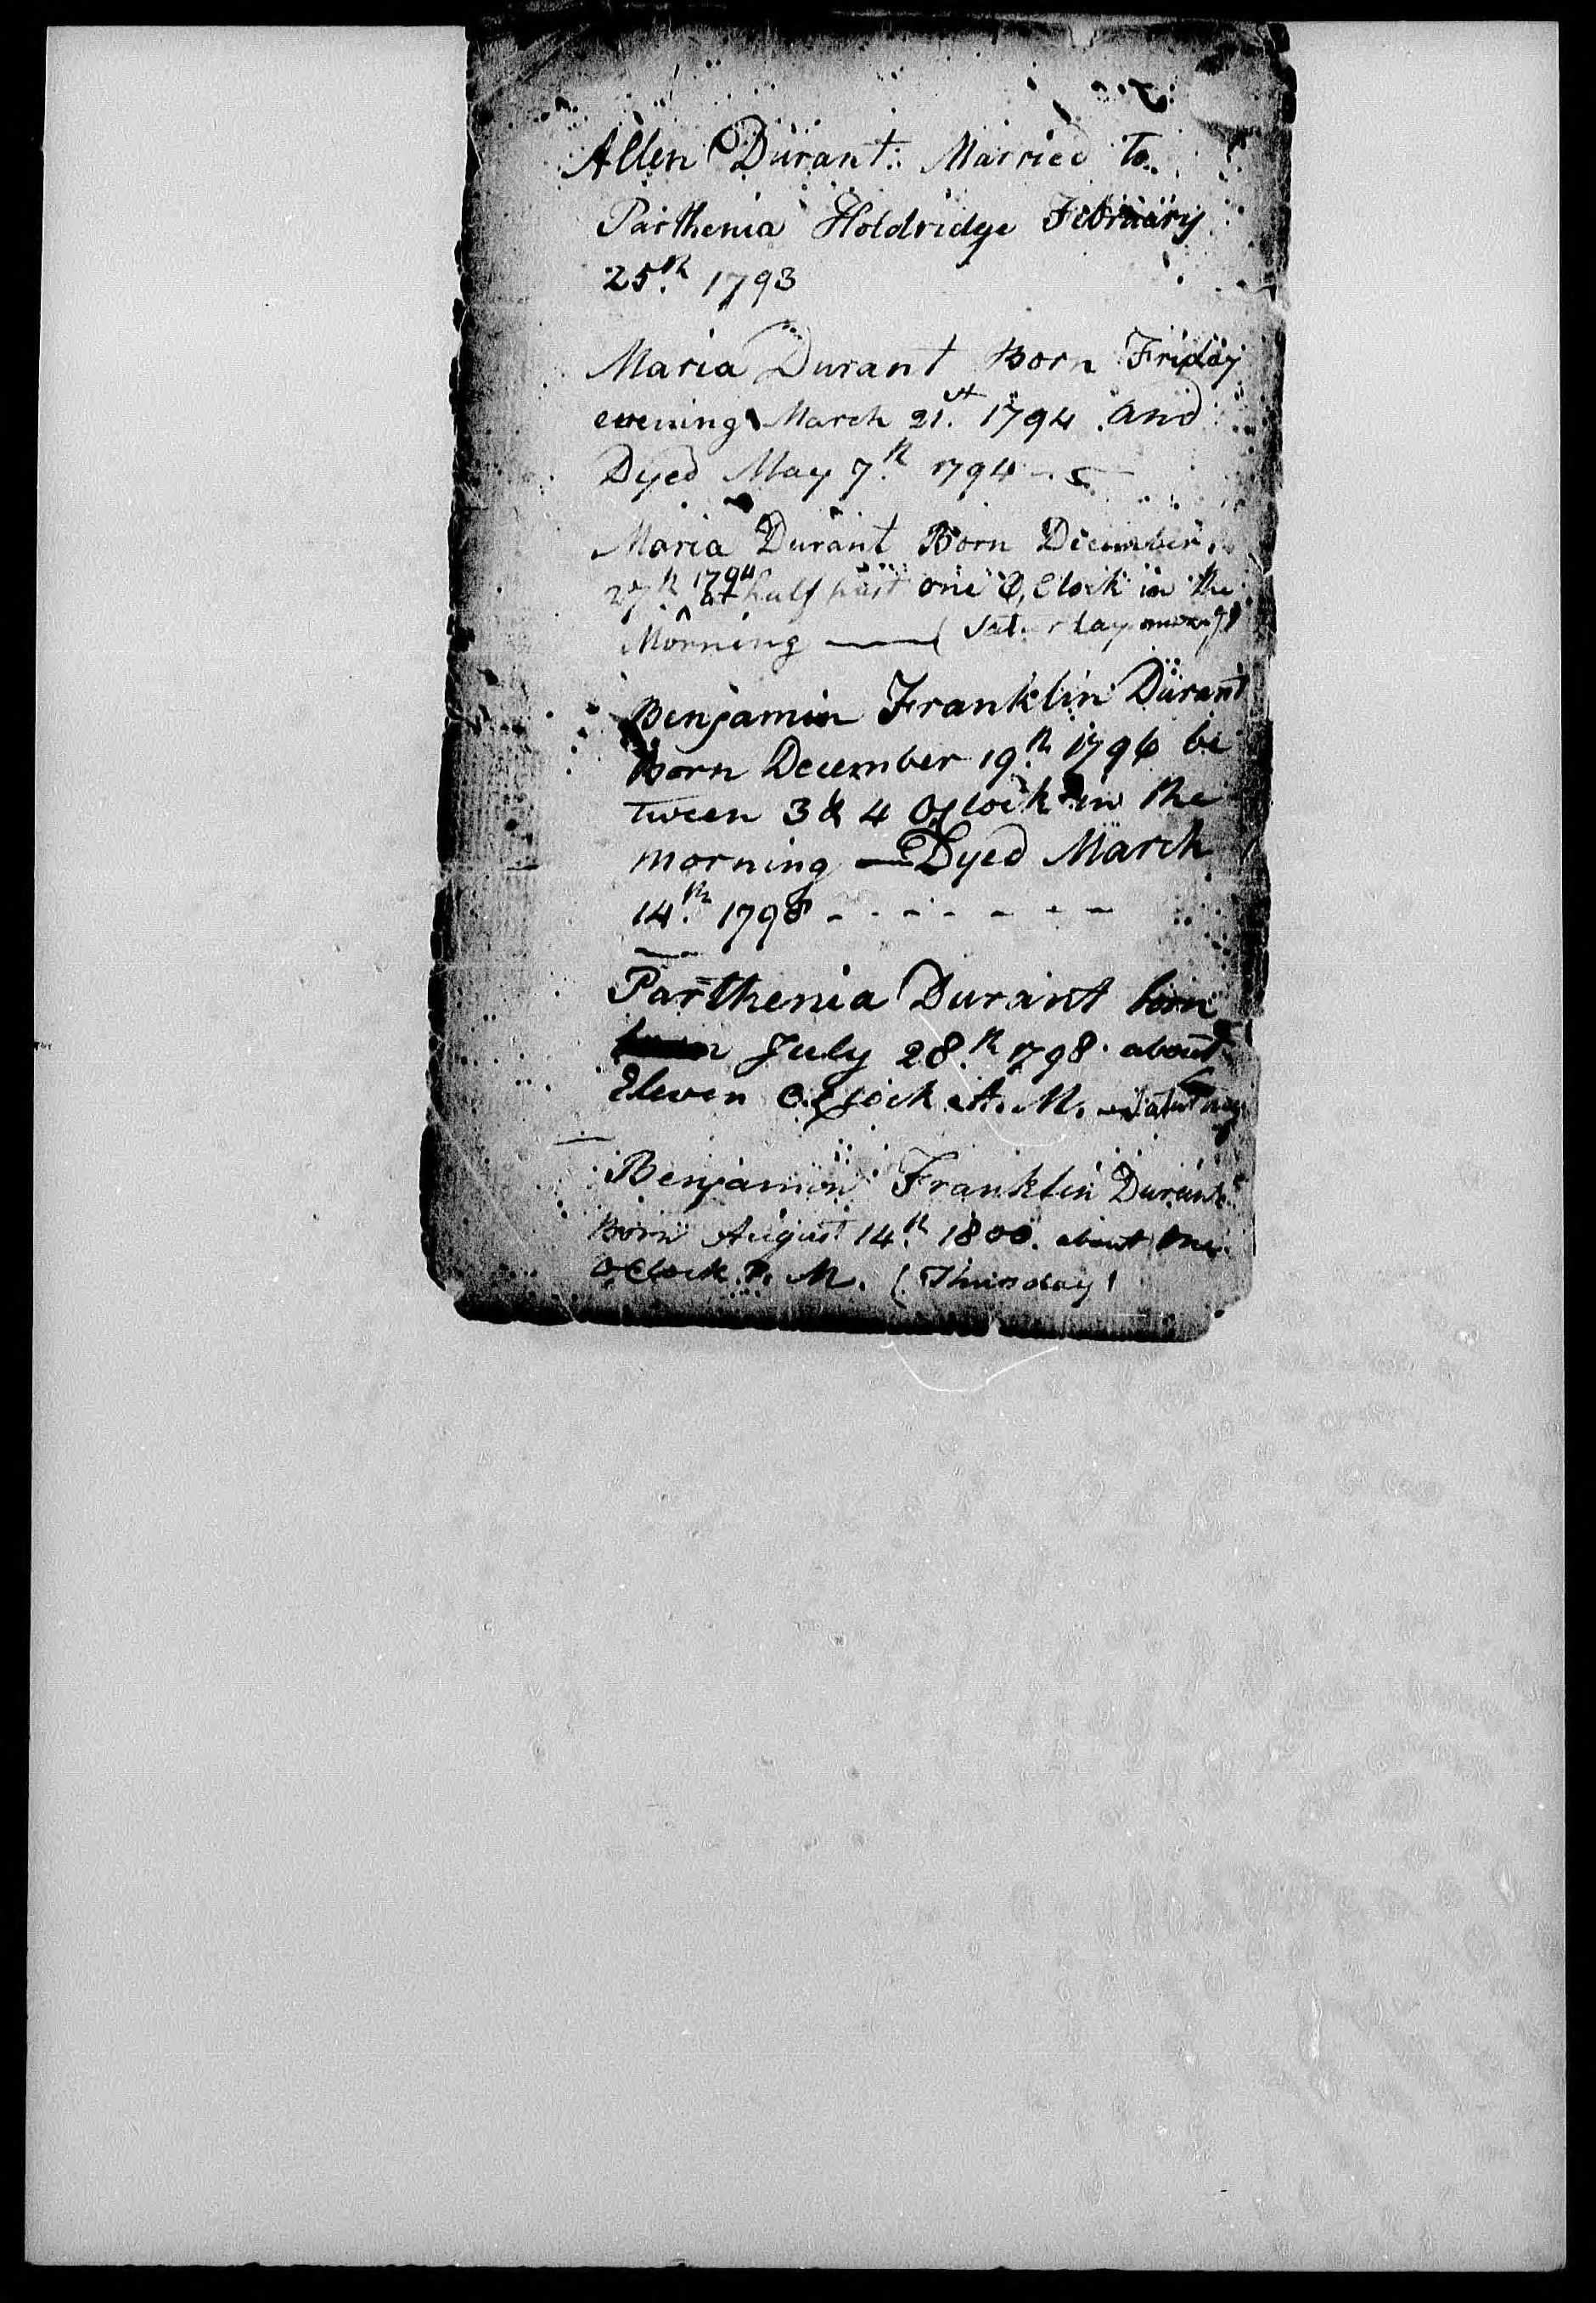 Allen Durant Married To
Parthenia Holdridge February
25th 1793
Maria Durant Born Friday
evening March 21st 1794 and
Dyed May 7th 1794
Maria Durant Born December
27th 1794 at half past one O,Clock in the
Morning — (Saturday morng)
Benjamin Franklin Durant
Born December 19th 1796 be
tween 3 & 4 O,Clock in the
morning — Dyed March
14th 1798 - - - - - - -
Parthenia Durant born
July 28th 1798 about
Eleven O,Clock A. M. Saturday
Benjamin Franklin Durant
Born August 14th 1800. about one
OClock P. M. (Thursday)